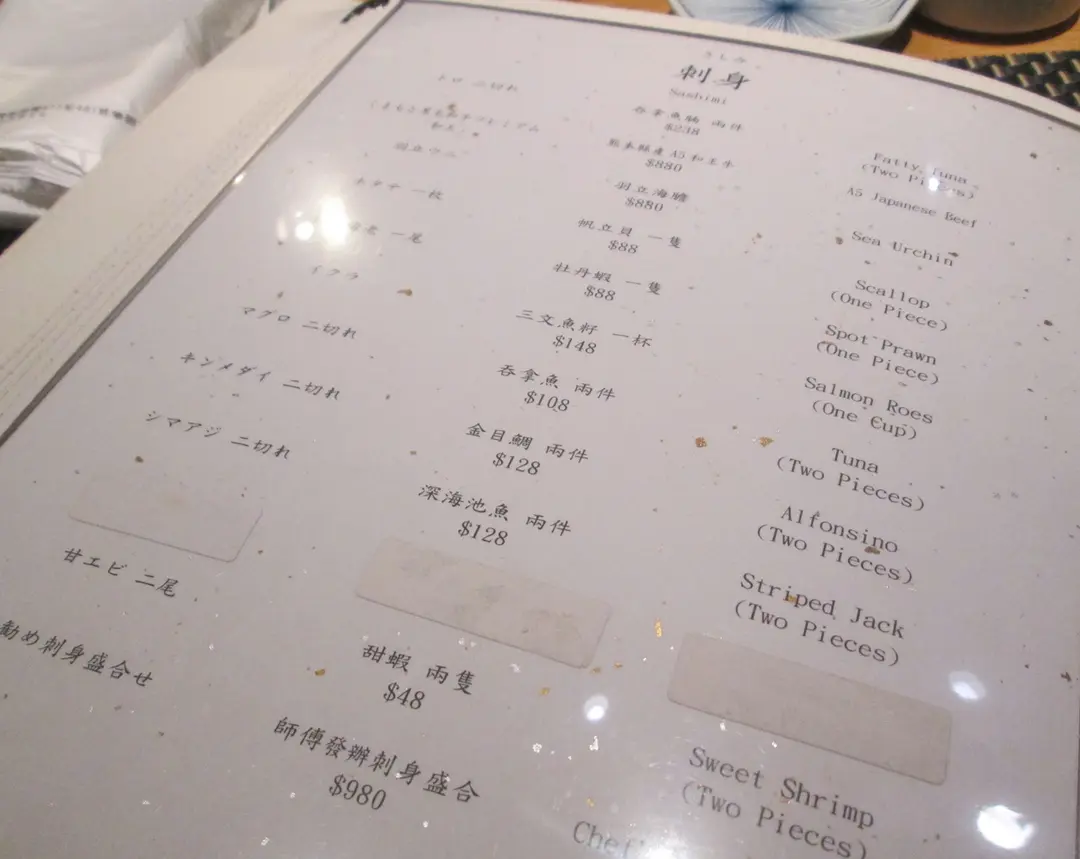 さしみ
刺身
Sashimi
トロ 二切れ
吞拿魚腩 兩件
$238
Fatty Tuna
(Two Pieces)
熊本縣產A5和王牛
$880
A5 Japanese Beef
羽立ウニ
羽立海膽
$880
Sea Urchin
ホタテ 一枚
帆立貝 一隻
$88
Scallop
(One Piece)
一尾
牡丹蝦 一隻
$88
Spot Prawn
(One Piece)
イクラ
三文魚籽 一杯
$148
Salmon Roes
(One Cup)
マグロ 二切れ
吞拿魚 兩件
$108
Tuna
(Two Pieces)
キンメダイ 二切れ
金目鯛 兩件
$128
Alfonsino
(Two Pieces)
シマアジ 二切れ
深海池魚 兩件
$128
Striped Jack
(Two Pieces)
甘エビ 二尾
甜蝦 兩隻
$48
Sweet Shrimp
(Two Pieces)
勧め刺身盛合せ
師傅發辦刺身盛合
$980
Chef'